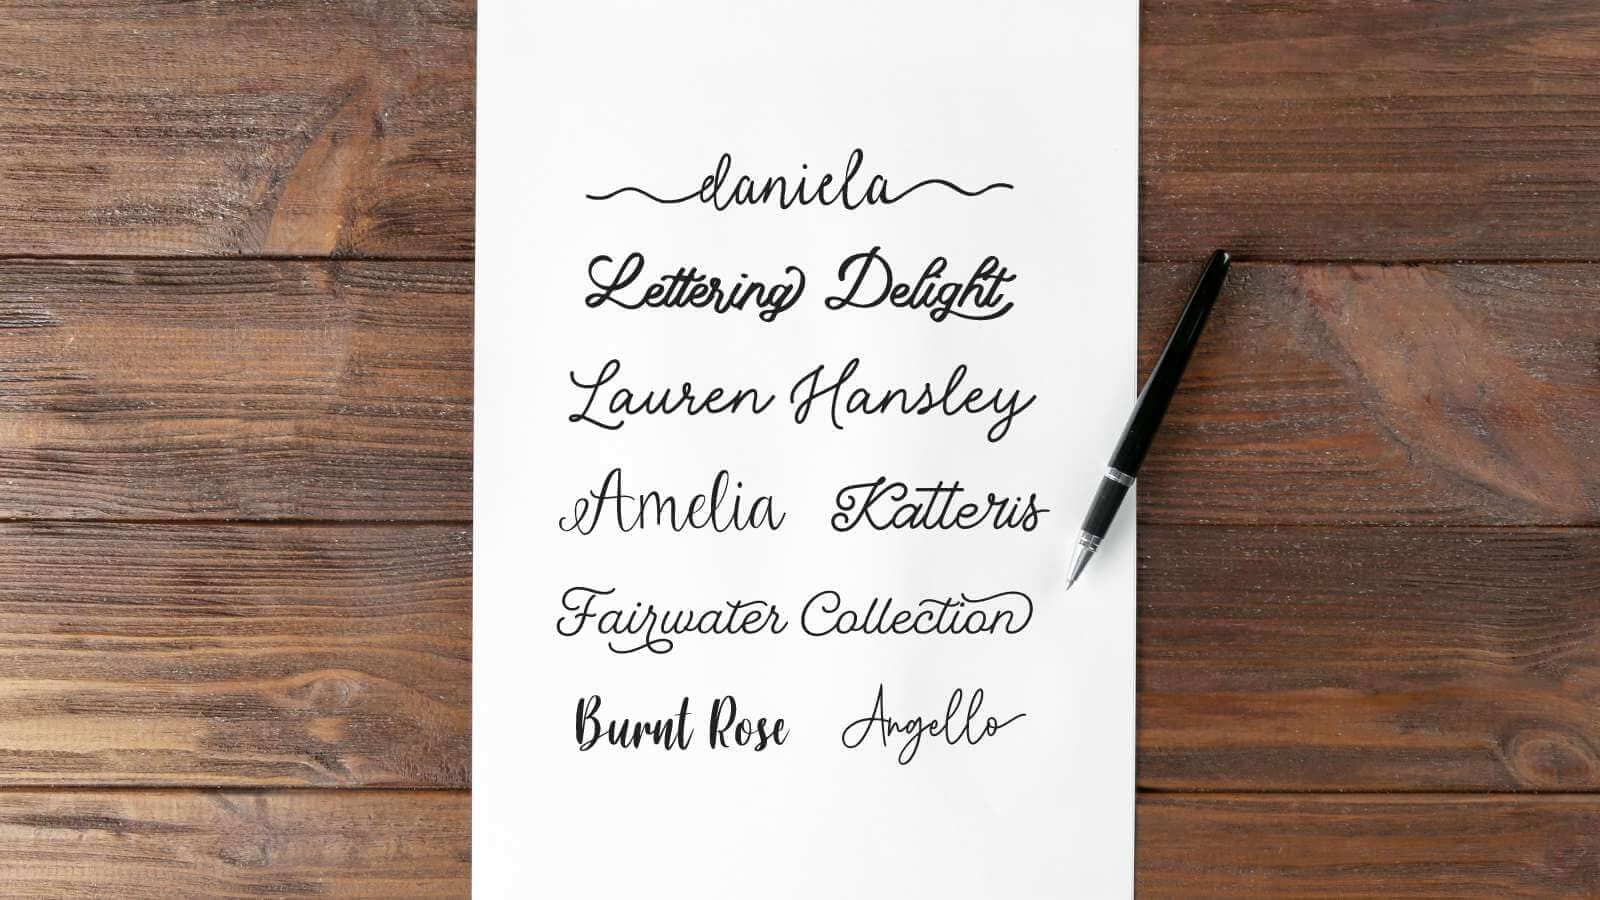 daniela
Lettering Delight
Lauren Hansley
Amelia Katteris
Fairwater Collection
Burnt Rose Angello